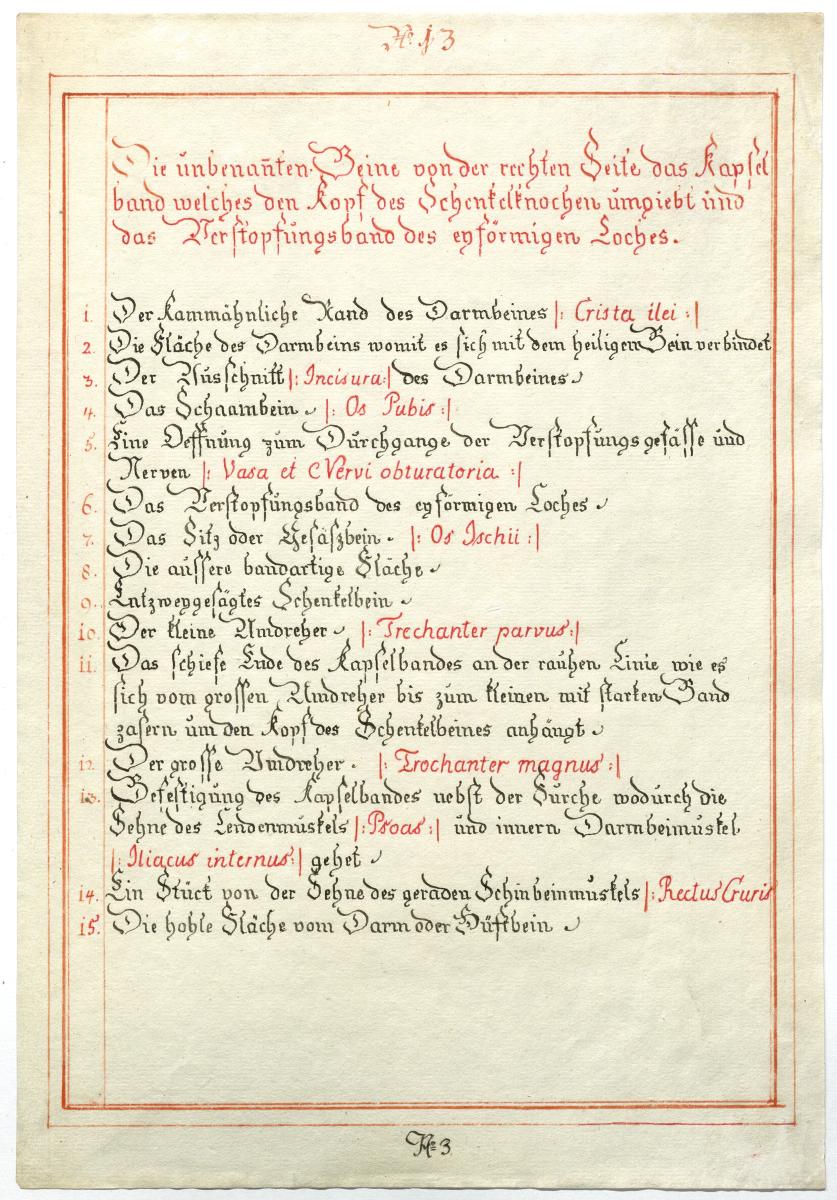 No 13
Die unbenan̄ten Beine von der rechten Seite das Kapsel
band welches den Kopf des Schenkelknochen umgiebt und
das Verstopfungsband des eyförmigen Loches.
1. Der Kammähnliche Rand des Darmbeines |: Crista ilei :|
2. Die Fläche des Darmbeins womit es sich mit dem heiligen Bein verbindet
3. Der Ausschnitt |: Incisura :| des Darmbeines
4. Das Schaambein |: Os Pubis :|
5. Eine Oeffnung zum Durchgange der Verstopfungsgefässe und
Nerven |: Vasa et Nervi obturatoria :|
6. Das Verstopfungsband des eyförmigen Loches
7. Das Sitz oder Gesäszbein |: Os Ischii :|
8. Die aussere bandartige Fläche
9. Entzweygesägtes Schenkelbein
10. Der kleine Umdreher |: Trechanter parvus :|
11. Das schiefe Ende des Kapselbandes an der rauhen Linie wie es
sich vom grossen Umdreher bis zum kleinen mit starken Band
zasern um den Kopf des Schenkelbeines anhängt
12. Der grosse Umdreher |: Trochanter magnus :|
13. Befestigung des Kapselbandes nebst der Furche wodurch die
Sehne des Lendenmuskels |: Psoas :| und innern Darmbeimuskel
|: Iliacus internus :| gehet
14. Ein Stück von der Sehne des geraden Schinbeinmuskels |: Rectus Cruris
15. Die hohle Fläche vom Darm oder Hüftbein
No 3